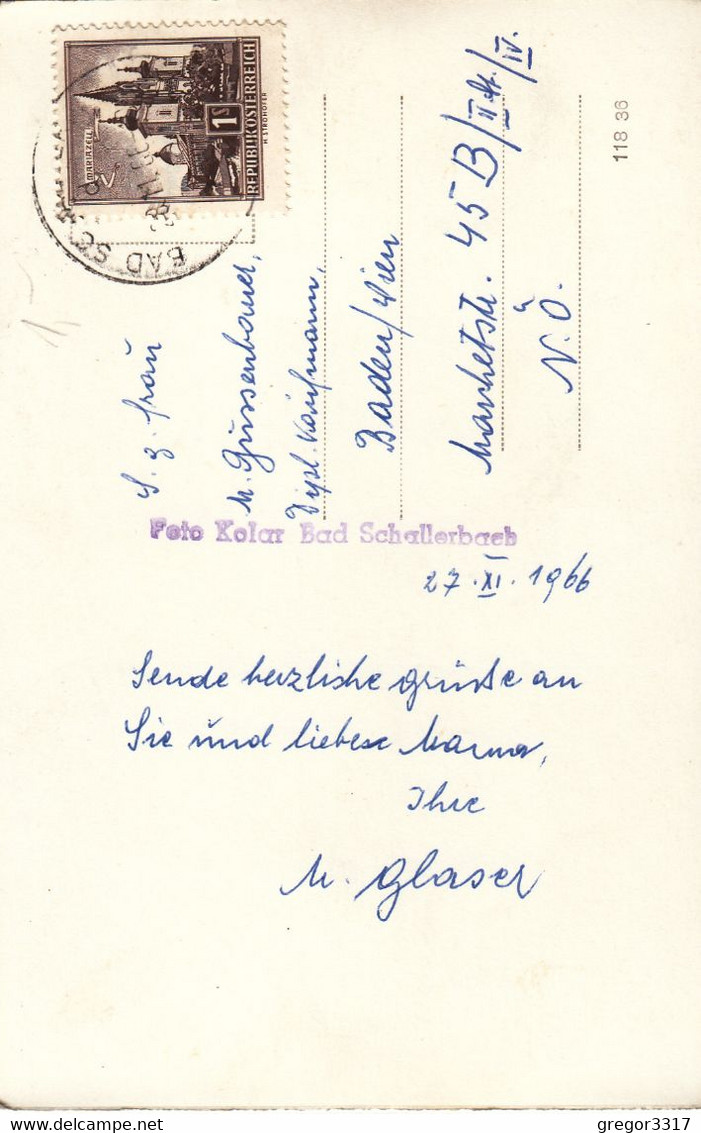 MARIAZELL
1S
REPUBLIK ÖSTERREICH
BAD SC
S. g. Frau
M. Gussenbauer,
Dipl. Kaufmann,
Baden/Wien
45 B/II St./IV.
N.Ö.
118 36
Foto Kolar Bad Schallerbach
27. XI. 1966
Sende herzliche Grüsse an
Sie und liebese Mama,
Ihre
M. Glaser
gregor3317